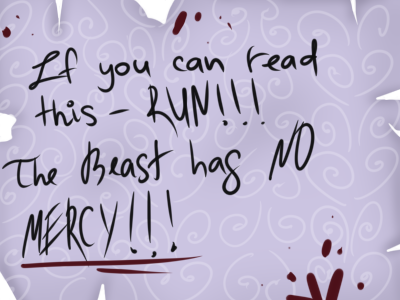 If you can read
this - RUN!!!
The Beast has NO
MERCY!!!